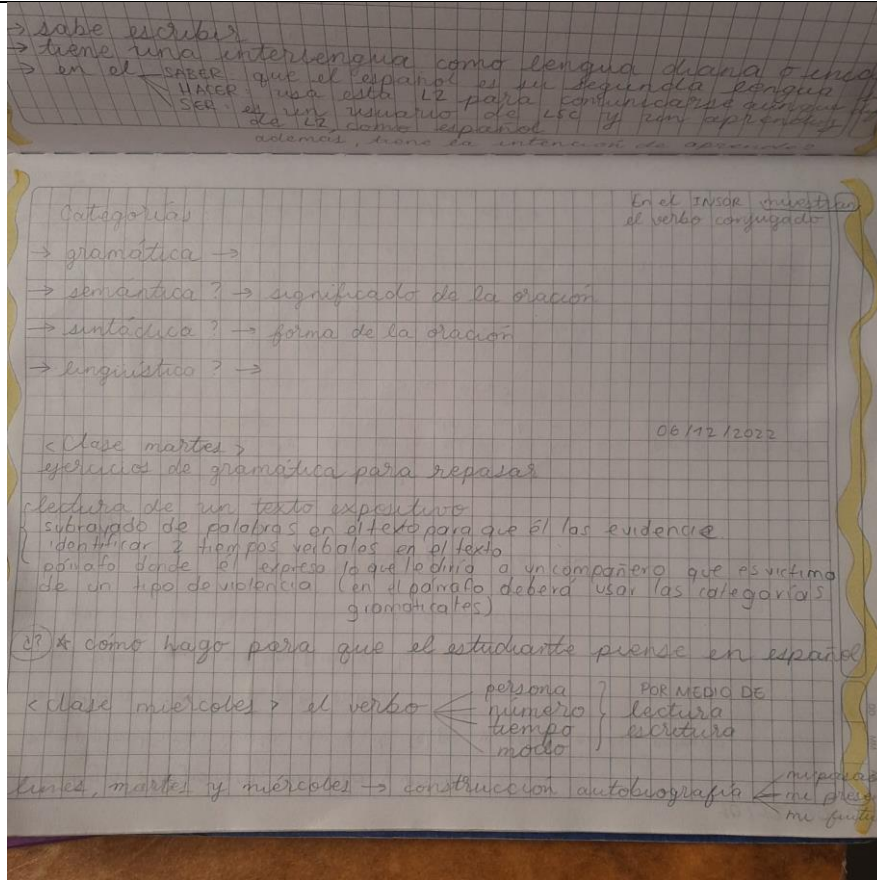 → sabe escribir
→ tiene una interlengua como lengua diana o
→ en el SABER: que el español es su segunda lengua
HACER: usa esta L2 para comunicarse aunque
SER: es un usuario de LSC y un aprendiz
de L2, como español
además, tiene la intención de aprender
En el INSOR muestran
el verbo conjugado
Categorías
→ gramática →
→ semántica ? → significado de la oración
→ sintáctica ? → forma de la oración
→ lingüístico ? →
06/12/2022
<Clase martes>
ejercicios de gramática para repasar
lectura de un texto expositivo
subrayado de palabras en el texto para que él las evidencie
identificar 2 tiempos verbales en el texto
párrafo donde él expresa lo que le diría a un compañero que es victima
de un tipo de violencia (en el párrafo deberá usar las categorías
gramaticales)
¿? * cómo hago para que el estudiante piense en español
<clase miércoles> el verbo
persona
número
tiempo
modo
POR MEDIO DE
lectura
escritura
lunes, martes y miércoles → construcción autobiografía
mi pasad
mi prese
mi futu